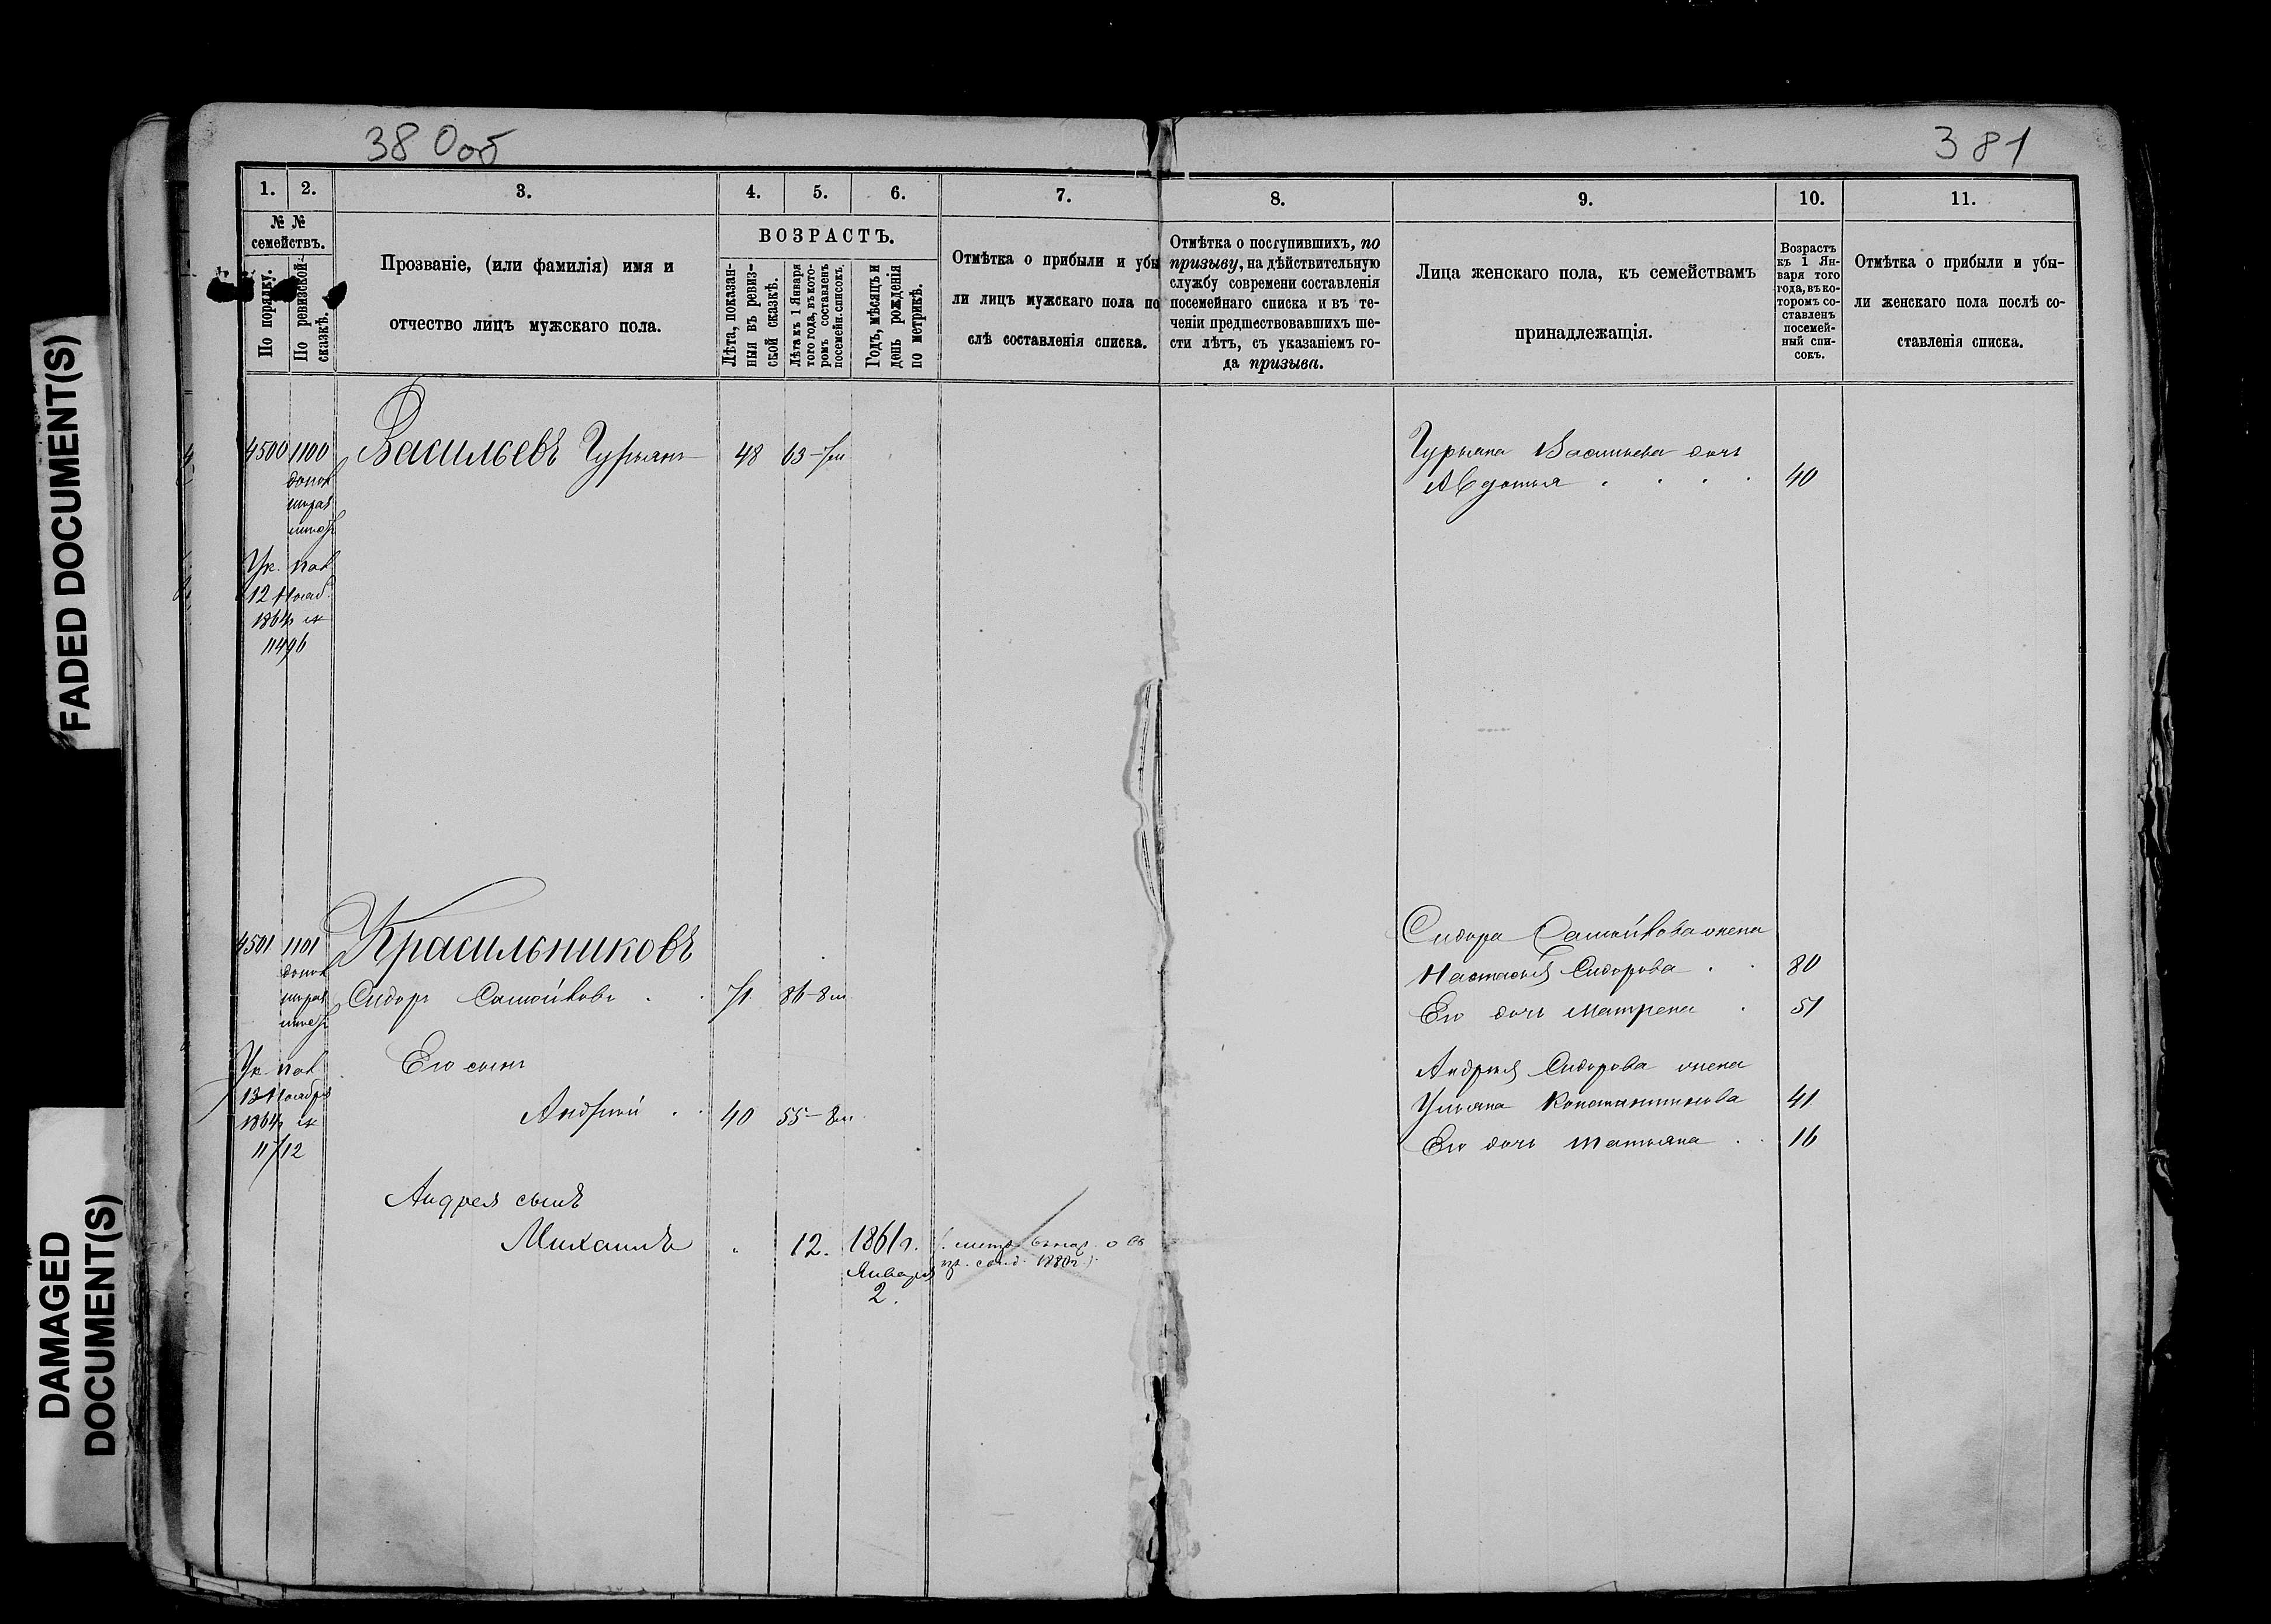 FADED DOCUMENT(S)
DAMAGED
DOCUMENT(S)
380об
381
1.
2.
3.
4.
5.
6.
7.
8.
9.
10.
11.
№ №
семействъ.
По порядку.
По ревизской
сказкѣ.
Прозваніе, (или фамилія) имя и
отчество лицъ мужскаго пола.
ВОЗРАСТЪ.
Лѣта, показан-
ныя въ ревиз-
ской сказкѣ.
Лѣта къ 1 Января
того года, въ кото-
ромъ составленъ
посемейн. списокъ.
Годъ, мѣсяцъ и
день рожденія
по метрикѣ.
Отмѣтка о прибыли и убы
ли лицъ мужскаго пола по
слѣ составленія списка.
Отмѣтка о поступившихъ, по
призыву, на дѣйствительную
службу современи составленія
посемейнаго списка и въ те-
ченіи предшествовавшихъ ше-
сти лѣтъ, съ указаніемъ го-
да призыва.
Лица женскаго пола, къ семействамъ
принадлежащія.
Возрастъ
къ 1 Ян-
варя того
года, въ ко-
торомъ со-
ставленъ
посемей-
ный спи-
сокъ.
Отмѣтка о прибыли и убы-
ли женскаго пола послѣ со-
ставленія списка.
4500 1100 Васильевъ Гурьянъ 48 63
Гурьяна Васильева дочь
Авдотья 40
Ук.
12 Нояб.
1864
11496
4501 1101 Красильниковъ
Сидоръ Самойловъ 71 86
Его сынъ
Андрей 40 55
Ук.
13 Ноября
1864
11712
Андрея сынъ
Михаилъ 12. 1861г.
Января
2.
1880г.
Сидора Самойлова жена
Настасья Сидорова 80
Его дочь Матрена 51
Андрея Сидорова жена
Ульяна Константинова 41
Его дочь Татьяна 16